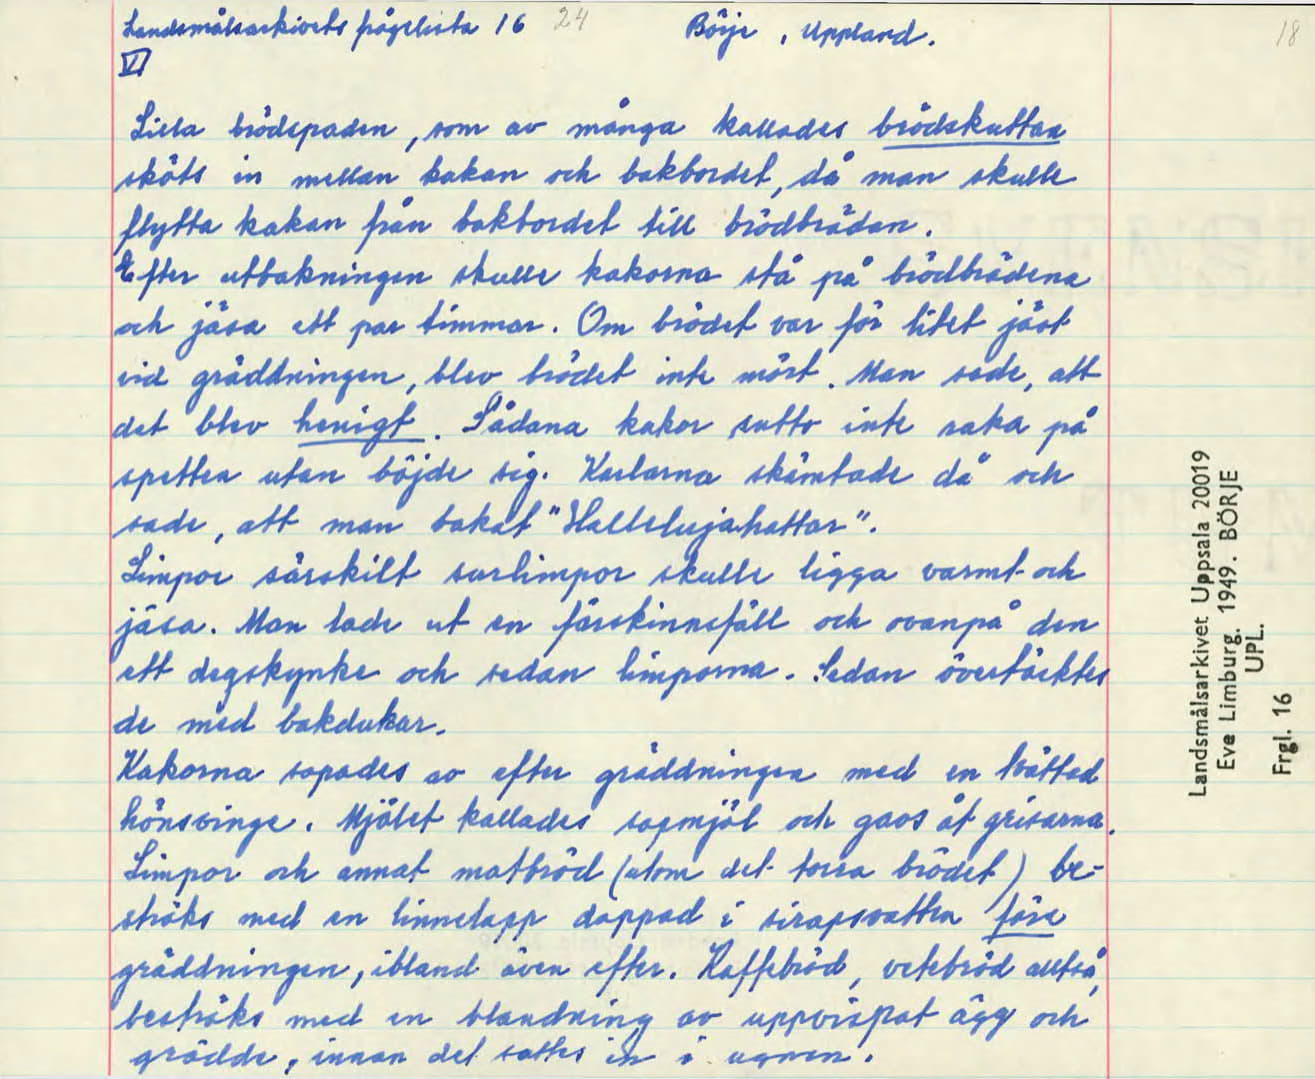 Landsmålsarkivets frågelista 16 24 Börje, Uppland. 18
VI
Lilla brödspaden, som av många kallades brödskuttan
sköts in mellan kakan och bakbordet, då man skulle
flytta kakan från bakbordet till brödbrädan.
Efter utbakningen skulle kakorna stå på brödbrädena
och jäsa ett par timmar. Om brödet var för litet jäst
vid gräddningen, blev brödet inte mört. Man sade, att
det blev henigt. Sådana kakor sutto inte raka på
spetten utan böjde sig. Karlarna skämtade då och
sade, att man bakat "Hallelujahattar".
Limpor särskilt surlimpor skulle ligga varmt och
jäsa. Man lade ut en fårskinnsfäll och ovanpå den
ett degskynke och sedan limporna. Sedan övertäcktes
de med bakdukar.
Kakorna sopades av efter gräddningen med en tvättad
hönsvinge. Mjölet kallades sopmjöl och gavs åt grisarna.
Limpor och annat matbröd (utom det torra brödet) be-
ströks med en linnelapp doppad i sirapsvatten före
gräddningen, ibland även efter. Kaffebröd, vetebröd alltså,
beströks med en blandning av uppvispat ägg och
grädde, innan det sattes in i ugnen.
Landsmålsarkivet Uppsala 20019
Eve Limburg. 1949. BÖRJE
UPL.
Frgl. 16